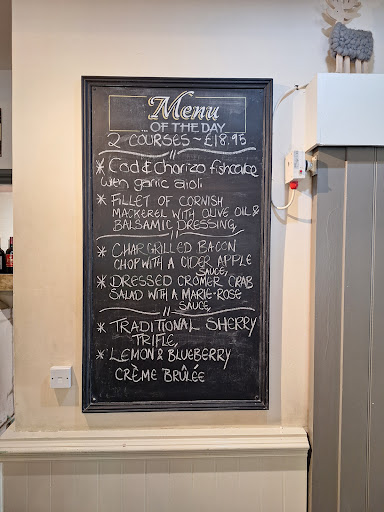 Menu
OF THE DAY
2 COURSES ~ £18.95
* Cod & Chorizo fishcake
with garlic aioli
* FILLET OF CORNISH
MACKEREL WITH OLIVE OIL &
BALSAMIC DRESSING
* CHARGRILLED BACON
CHOP WITH A CIDER APPLE
SAUCE,
* DRESSED CROMER CRAB
SALAD WITH A MARIE-ROSE
SAUCE,
* TRADITIONAL SHERRY
TRIFLE,
* LEMON & BLUEBERRY
CRÈME BRÛLÉE